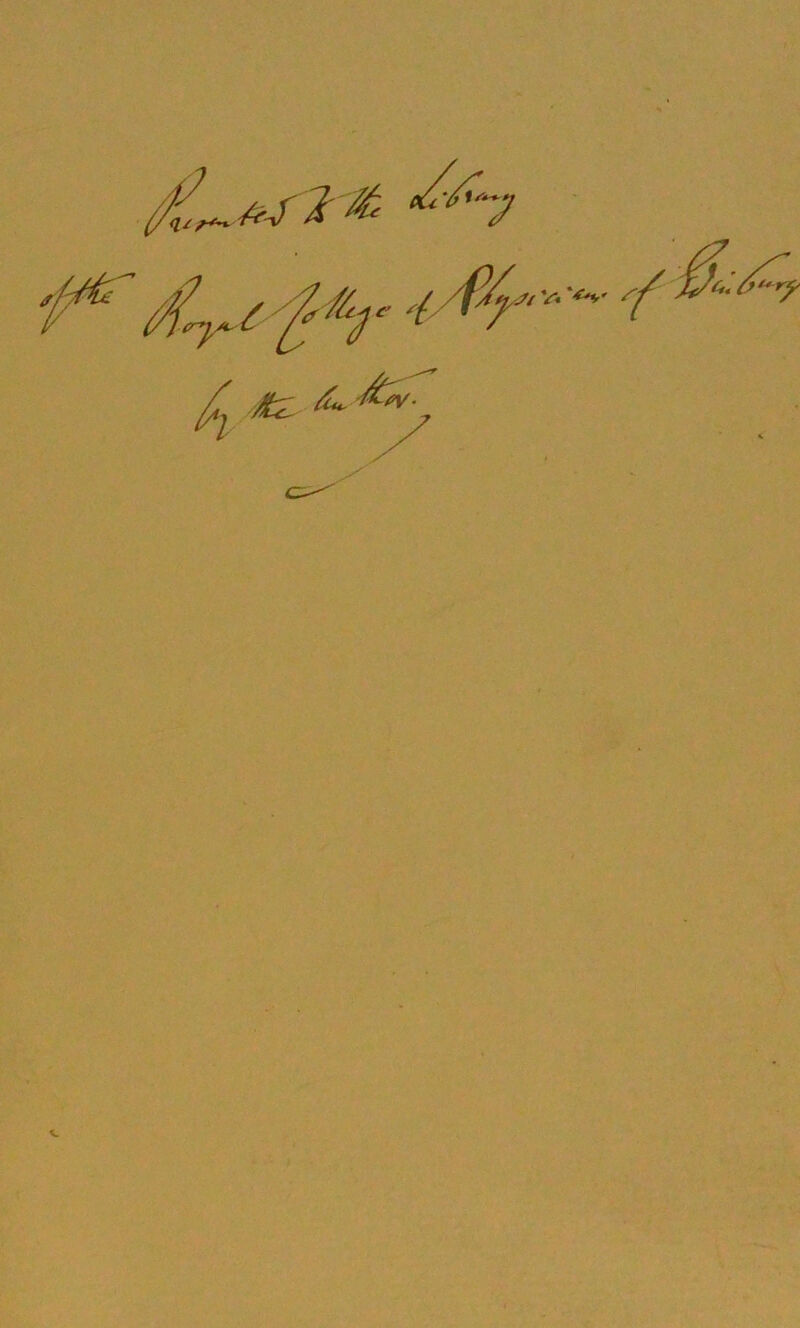 Presented to the Library
of the Royal College of Physicians of Edinburgh
by the Author.